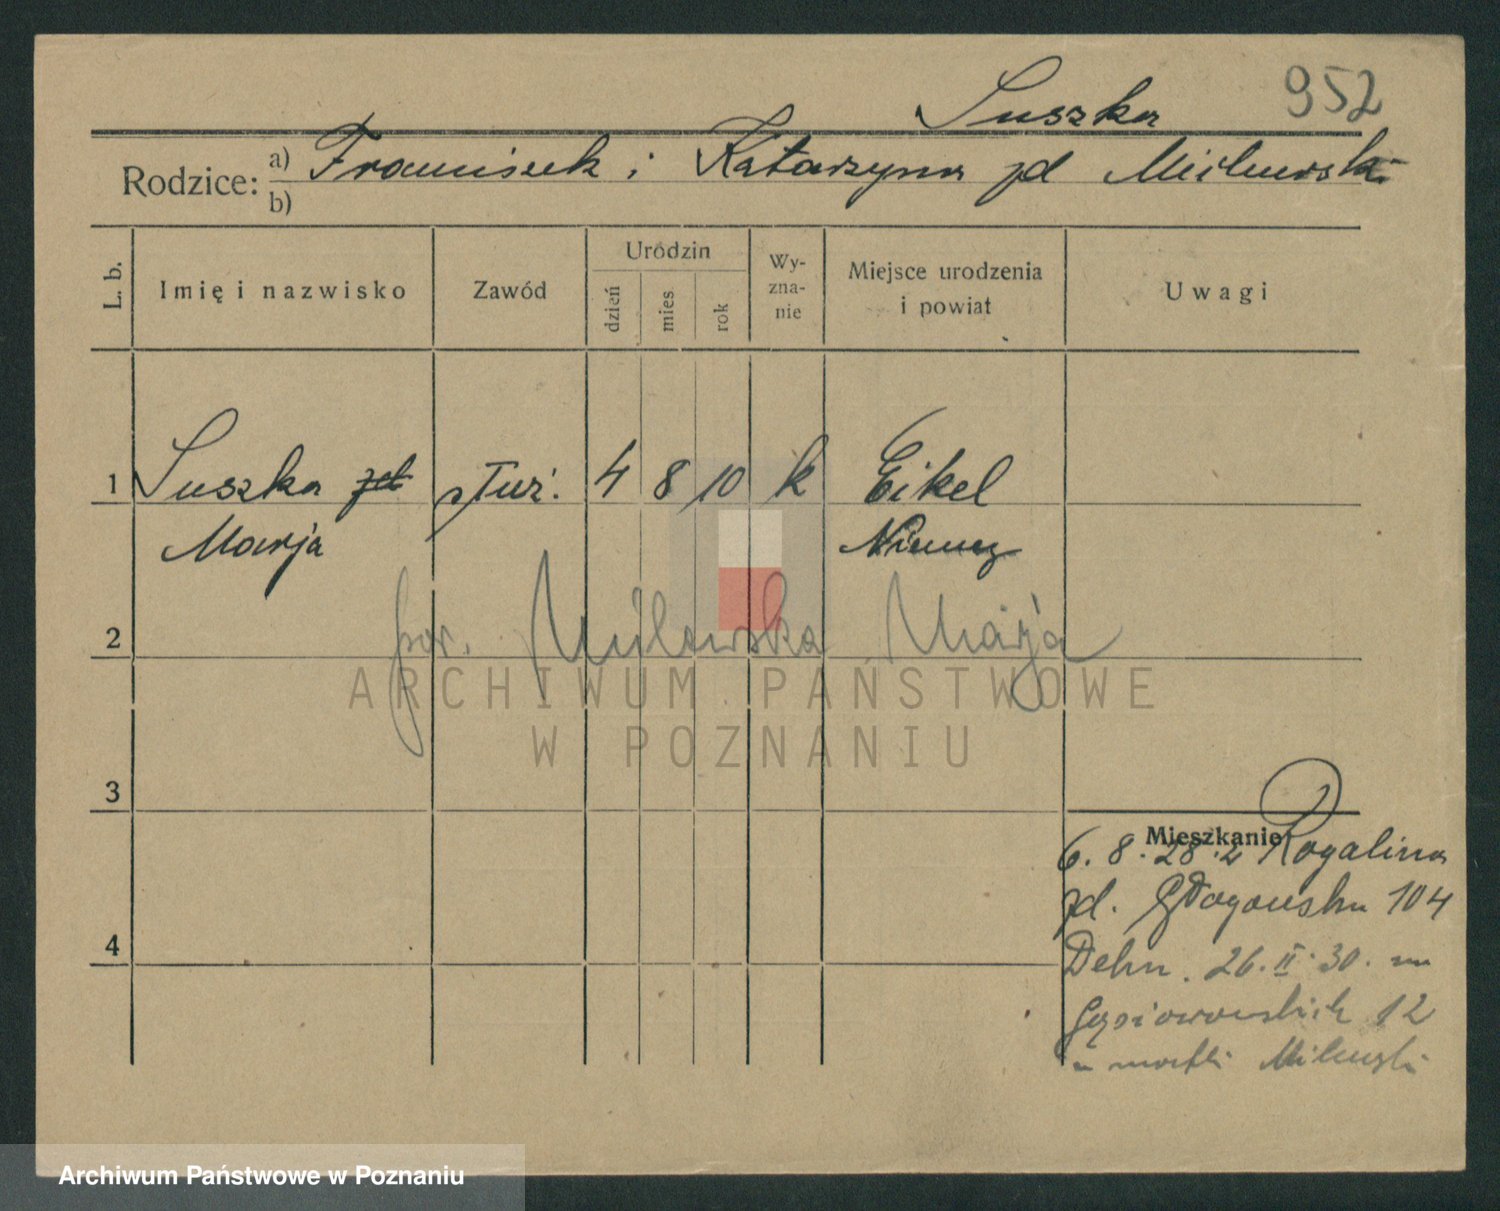 952
Suszka
Rodzice: a) Franciszek i Katarzyna zd Milewska
b)
L. b.
Imię i nazwisko
Zawód
Urodzin
dzień
mies
rok
Wy-
zna-
nie
Miejsce urodzenia
i powiat
Uwagi
1 Suszka służ. 4 8 10 k Eikel
Marja Niemcy
2 por. Milewska Marja
ARCHIWUM PAŃSTWOWE
W POZNANIU
3
Mieszkanie
6. 8. 28. z Rogalina
pd. 104
4
26. II. 30.
Gąsiorowskich 12
u matki
Archiwum Państwowe w Poznaniu